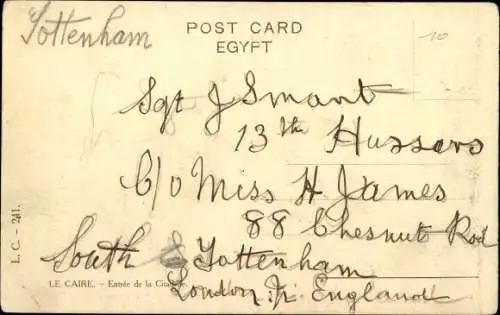 Tottenham
POST CARD
EGYPT
10
Sgt J Smart
13th Hussars
C/o Miss H James
88 Chesnut Rod
South Tottenham
London N. England
L. C. - 241.
LE CAIRE. - Entrée de la Citadelle.